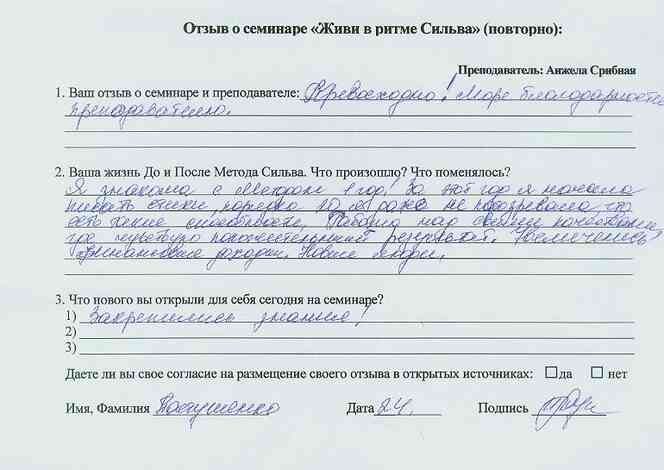 Отзыв о семинаре «Живи в ритме Сильва» (повторно):
Преподаватель: Анжела Срибная
1. Ваш отзыв о семинаре и преподавателе: Превосходно! Море благодарности
преподавателю.
2. Ваша жизнь До и После Метода Сильва. Что произошло? Что поменялось?
Я знакома с Методом 1 год! За этот год я начала
писать стихи, даже не подозревала что
есть такие способности. Работаю над своими качествами
где чувствую положительный результат. Увеличились
финансовые доходы. Новые люди.
3. Что нового вы открыли для себя сегодня на семинаре?
1) Закрепились знания!
2)
3)
Даете ли вы свое согласие на размещение своего отзыва в открытых источниках: да нет
Имя, Фамилия Дата 24. Подпись